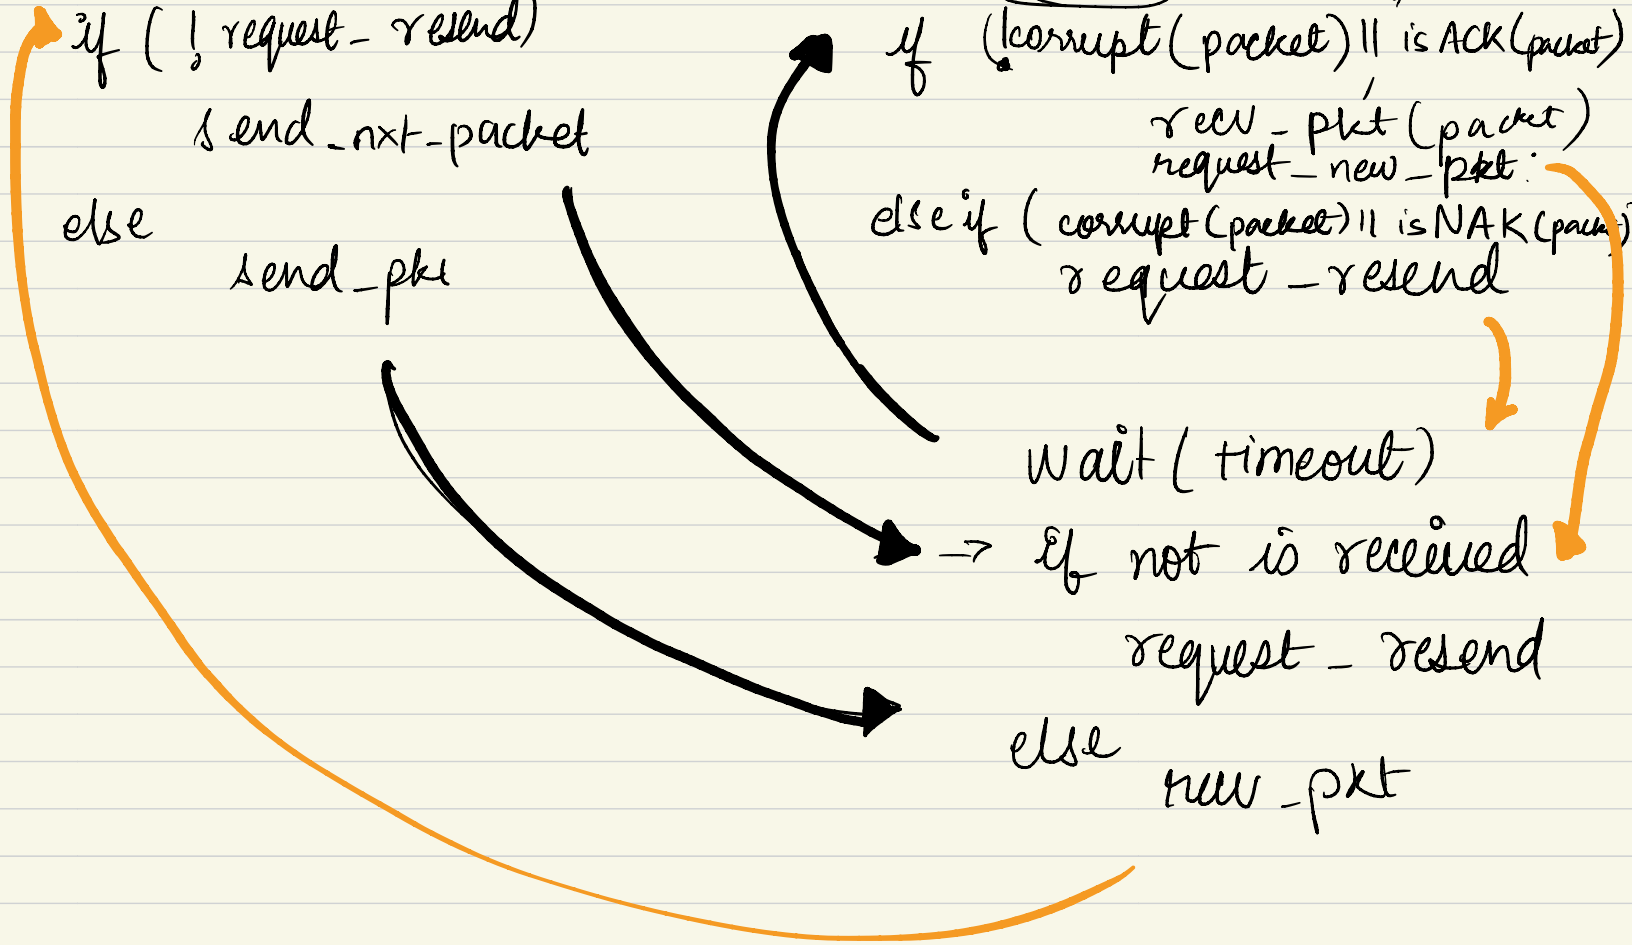 if ( ! request_resend)
send_nxt_packet
else
send_pkt
if (!corrupt(packet) || isACK(packet)
recv_pkt(packet)
request_new_pkt:
else if ( corrupt(packet) || isNAK(packet)
request_resend
wait( timeout)
-> if not is received
request_resend
else
recv_pkt